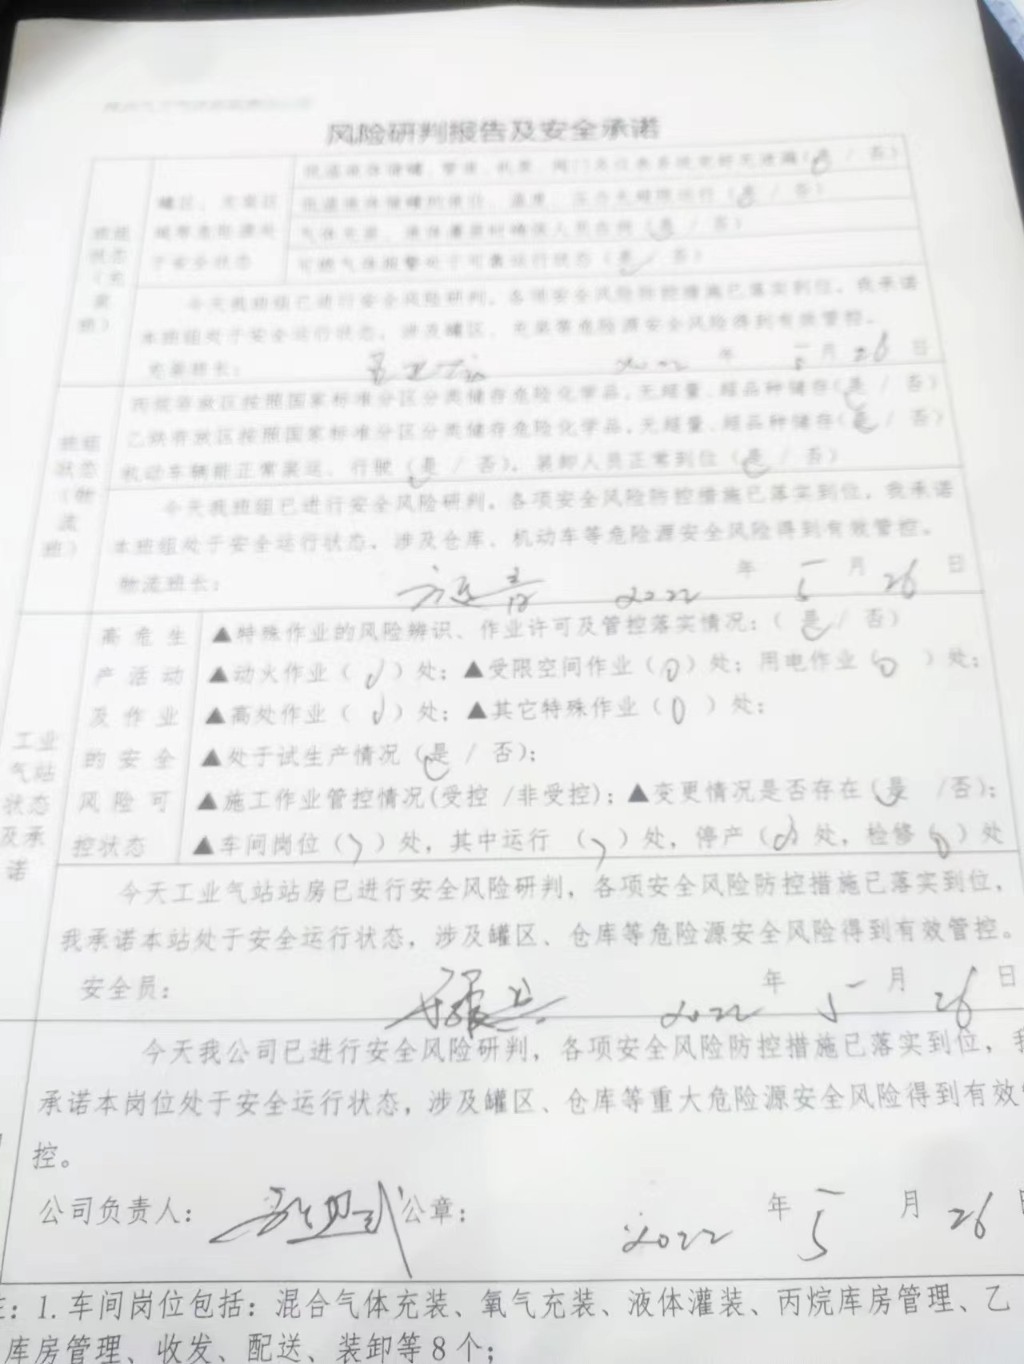 风险研判报告及安全承诺
罐区、充装区
低温液体储罐的液位、温度、压力无超限运行（是 / 否）
于安全状态
可燃气体报警处于可靠运行状态（是 / 否）
班组
状态
（充
装
班）
今天我班组已进行安全风险研判，各项安全风险防控措施已落实到位，我承诺
本班组处于安全运行状态，涉及罐区、充装等危险源安全风险得到有效管控。
充装班长：
2022 年 5 月 26 日
丙烷存放区按照国家标准分区分类储存危险化学品，无超量、超品种储存（是 / 否）
乙炔存放区按照国家标准分区分类储存危险化学品，无超量、超品种储存（是 / 否）
机动车辆能正常装运、行驶（是 / 否），装卸人员正常到位（是 / 否）
班组
状态
（物
流
班）
今天我班组已进行安全风险研判，各项安全风险防控措施已落实到位，我承诺
本班组处于安全运行状态，涉及仓库、机动车等危险源安全风险得到有效管控。
物流班长：
2022 年 5 月 26 日
工业
气站
状态
及承
诺
高危生
产活动
及作业
的安全
风险可
控状态
▲特殊作业的风险辨识、作业许可及管控落实情况：（是 / 否）
▲动火作业（0）处；▲受限空间作业（0）处；用电作业（0）处；
▲高处作业（0）处；▲其它特殊作业（0）处；
▲处于试生产情况（是 / 否）；
▲施工作业管控情况（受控 /非受控）；▲变更情况是否存在（是 /否）；
▲车间岗位（7）处，其中运行（7）处，停产（0）处，检修（0）处
今天工业气站站房已进行安全风险研判，各项安全风险防控措施已落实到位，
我承诺本站处于安全运行状态，涉及罐区、仓库等危险源安全风险得到有效管控。
安全员：
2022 年 5 月 26 日
今天我公司已进行安全风险研判，各项安全风险防控措施已落实到位，我
承诺本岗位处于安全运行状态，涉及罐区、仓库等重大危险源安全风险得到有效
控。
公司负责人： 公章： 2022 年 5 月 26
注：1.车间岗位包括：混合气体充装、氧气充装、液体灌装、丙烷库房管理、乙
库房管理、收发、配送、装卸等8个；